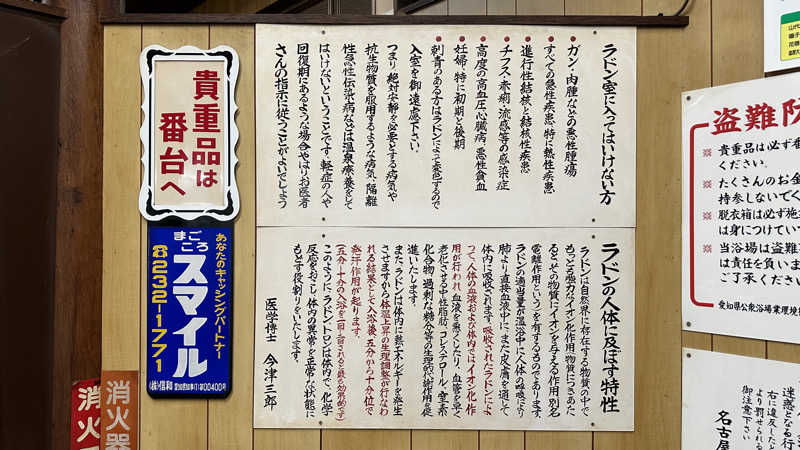 ラドン室に入ってはいけない方
ガン・肉腫などの悪性腫瘍
すべての急性疾患、特に熱性疾患
進行性結核と結核性疾患
チフス・赤痢・流感等の感染症
高度の高血圧心臓病、悪性貧血
妊婦、特に初期と後期
刺青のある方はラドンによって変色するので
入室を御遠慮下さい。
つまり絶対安静を必要とする病気や
抗生物質を服用するような病気、隔離
性急性伝染病などは温泉療養をして
はいけないということです。軽症の人や
回復期にあるような場合やはりお医者
さんの指示に従うことがよいでしょう
ラドンの人体に及ぼす特性
ラドンは自然界に存在する物質の中で
もっとも強力なイオン化作用(物質につきあた
ると、その物質にイオンを与える作用、別名
電離作用という)を有するものであります。
ラドンの適当量が温浴中に人体の呼吸により
肺より直接血液中に、また皮膚を通して
体内に吸収されます。吸収されたラドンによ
って、人体の血液および体内ではイオン化作
用が行われ、血液を悪くしたり、血管を早く
老化させる中性脂肪、コレステロール、窒素
化合物、過剰な糖分等の生理的代謝作用を促
進いたします。
また、ラドンは体内に熱エネルギーを発生
させますから体温上昇の生理調整が行なわ
れる結果として入浴後、五分から十分位で
発汗作用が起ります。
(五分〜十分の入浴を二回〜三回されると最も効果的です)
このように、ラドントロンは体内で、化学
反応をおこし、体内の異常を正常な状態に
もどす役割りをいたします。
医学博士 今津三郎
貴重品は
番台へ
あなたのキャッシングパートナー
まごころ
スマイル
☎232-1771
(株)信和
愛知県知事(1)第00400号
消火器
消火
盗難防
※ 貴重品は必ず番
ください。
※ たくさんのお金
持参しないでく
※ 脱衣箱は必ず施
は身につけてい
※ 当浴場は盗難
は責任を負いま
ご了承ください
愛知県公衆浴場業環境衛
迷惑となる行
右に違反したと
より罰せられる
御注意下さい
名古屋